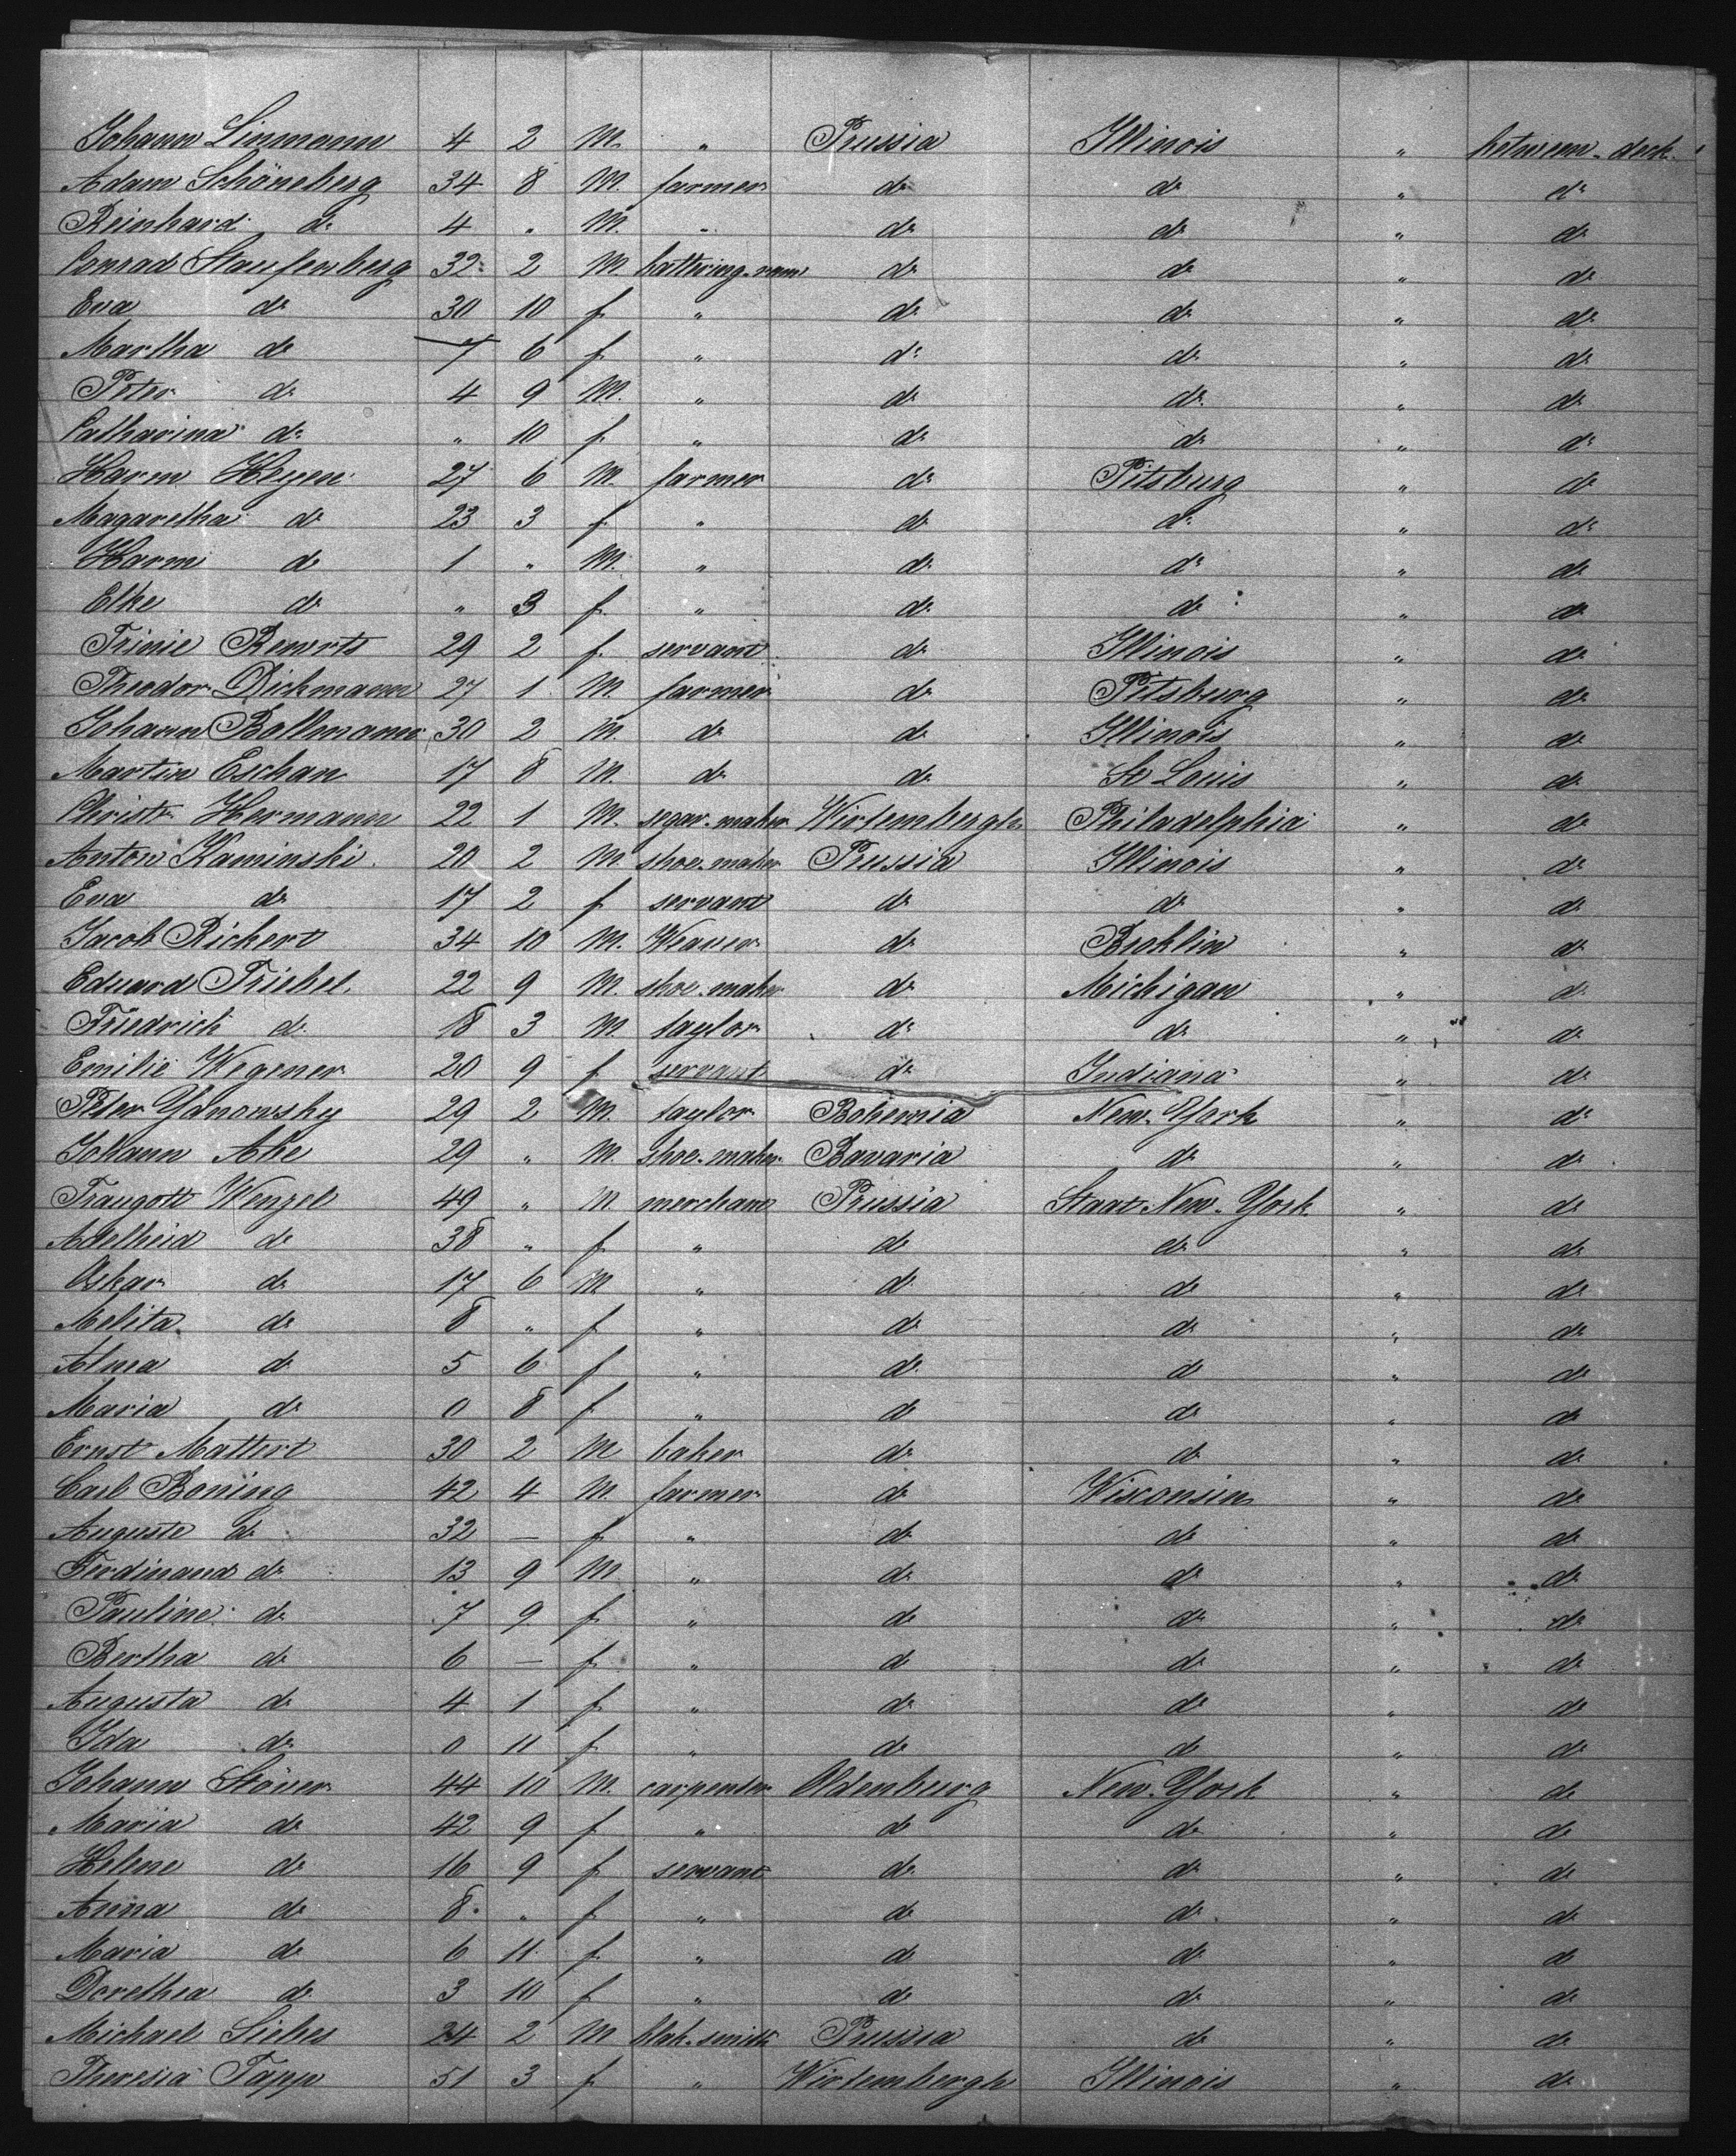 Johann Linmann 4 2 M. " Prussia Illinois " between-deck
Adam Schöneberg 34 8 M. farmer do do " do
Reinhard do 4 " M. " do do " do
Conrad Staufenberg 32 2 M. do do " do
Eva do 30 10 f " do do " do
Martha do 7 6 f " do do " do
Peter do 4 9 M. " do do " do
Catharina do " 10 f " do do " do
Harm Heyen 27 6 M. farmer do Pitsburg " do
Magaretha do 23 3 f " do do " do
Harm do 1 " M. " do do " do
Elke do " 3 f. " do do " do
Trinie 29 2 f. servant do Illinois " do
Theodor Dickmann 27 1 M. farmer do Pitsburg " do
Johann Bollmann 30 2 M. do do Illinois " do
Martin Eschan 17 8 M. do do St Louis " do
Christ. Hermann 22 1 M. segar-maker Wirtembergh Philadelphia " do
Anton Kaminski 20 2 M. shoe-maker Prussia Illinois " do
Eva do 17 2 f servant do do " do
Jacob Rickert 34 10 M. Weaver do Broklin " do
Eduard Triebel 22 9 M. shoe-maker do Michigan " do
Friedrich do 18 3 M. taylor do do " do
Emilie Wegener 20 9 f servant do Indiana " do
Peter Yanowsky 29 2 M. taylor Bohemia New-York " do
Johann Ahe 29 " M. shoe-maker Bavaria do " do
Traugott Wenzel 49 " M. merchant Prussia Staat New-York " do
Adelheid do 38 " f " do do " do
Oskar do 17 6 M " do do " do
Melita do 8 " f " do do " do
Alma do 5 6 f " do do " do
Maria do 0 8 f " do do " do
Ernst Mattert 30 2 M baker do do " do
Carl Boning 42 4 M. farmer do Wisconsin " do
Auguste do 32 — f " do do " do
Ferdinand do 13 9 M. " do do " do
Pauline do 7 9 f " do do " do
Bertha do 6 — f " do do " do
Augusta do 4 1 f " do do " do
Ida do 0 11 f " do do " do
Johann Stöver 44 10 M. carpenter Oldenburg New-York " do
Maria do 42 9 f " do do " do
Helene do 16 9 f servant do do " do
Anna do 8 " f " do do " do
Maria do 6 11 f " do do " do
Dorethea do 3 10 f " do do " do
Michael Siebes 24 2 M blak-smith Prussia do " do
Theresia Tapp 51 3 f " Wirtembergh Illinois " do